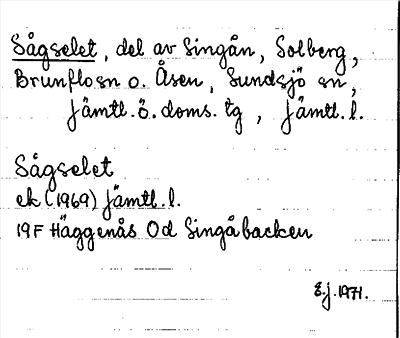 Sågselet, del av Singån, Solberg,
Brunflo sn o. Åsen, Sundsjö sn,
Jämtl. ö. doms. tg, Jämtl. l.
Sågselet
ek (1969) Jämtl. l.
19F Häggenås 0d Singåbacken
E.j. 1971.